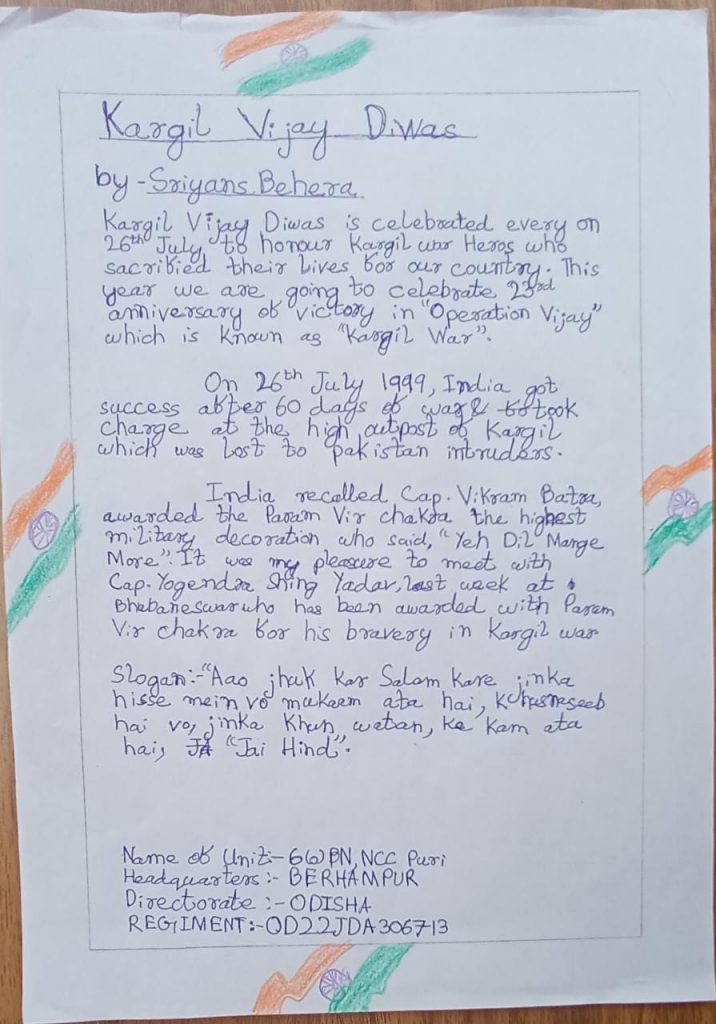 Kargil Vijay Diwas
by - Sriyans Behera
Kargil Vijay Diwas is celebrated every on
26th July to honour Kargil war Heros who
sacrified their lives for our country. This
year we are going to celebrate 23rd
anniversary of victory in "Operation Vijay"
which is known as "Kargil War".
On 26th July 1999, India got
success after 60 days of war & took
charge at the high outpost of Kargil
which was lost to pakistan intruders.
India recalled Cap. Vikram Batra,
awarded the Param Vir chakra the highest
military decoration who said, "Yeh Dil Mange
More". It was my pleasure to meet with
Cap. Yogendra Shing Yadav, last week at
Bhubaneswar who has been awarded with Param
Vir chakra for his bravery in Kargil war
Slogan:- "Aao jhuk kar Salam kare jinka
hisse mein vo mukaem ata hai, Khusnaseeb
hai vo, jinka Khun, watan, ke kam ata
hai, "Jai Hind".
Name of Unit:- BN, NCC Puri
Headquarters :- BERHAMPUR
Directorate :- ODISHA
REGIMENT:- OD22JDA306713